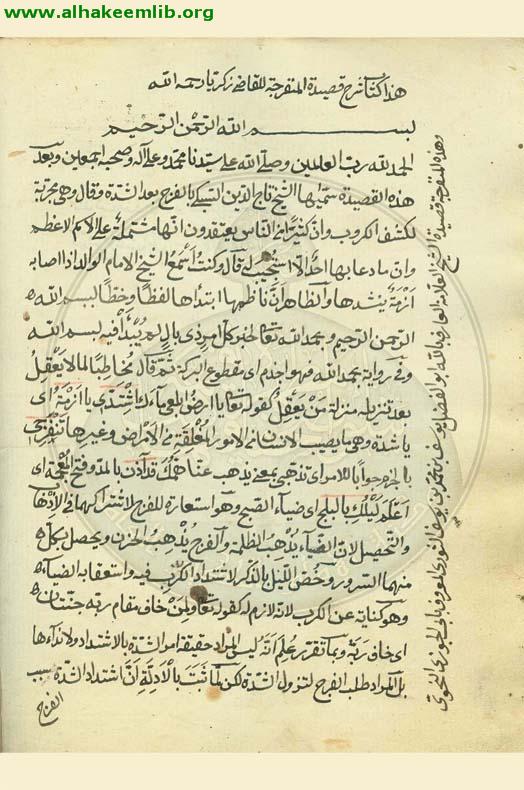 www.alhakeemlib.org
هذا كتاب شرح قصيدة المنفرجة للقاضي زكريا رحمه الله
بسم الله الرحمن الرحيم
الحمد لله رب العلمين وصلى الله على سيدنا محمد وعلى آله وصحبه اجمعين وبعد
هذه القصيدة سماها الشيخ تاج الدين السبكي بالفرج بعد الشدة وقال وهي مجربة
لكشف الكروب وان كثيرا من الناس يعتقدون انها مشتملة على الاسم الاعظم
وان ما دعا بها احد الا استجيب له قال وكنت أسمع الشيخ الامام الوالد اذا اصابه
أزمة ينشدها والظاهر ان ناظمها ابتدأها لفظا وخطا ببسم الله
الرحمن الرحيم وبحمد الله تعالى لخبر كل امر ذي بال لم يبدأ فيه ببسم الله
وفي رواية بحمد الله فهو اجذم اي مقطوع البركة ثم قال مخاطبا لما لا يعقل
بعد تنزيله منزلة من يعقل كقوله تعالى يا ارض ابلعي ماءك اشتدي يا ازمة اي
يا شدة وهي ما يصيب الانسان في الامور المقلقة من الامراض وغيرها تنفرجي
بالجزم جوابا للامر اي تذهبي بمعنى يذهب عنا همك قد آذن بالمد وفتح المعجمة اي
أعلم ليلك بالبلج اي ضياء الصبح وهو استعارة للفرج لاشتراكهما في الاذهاب
والتحصيل لان الضياء يذهب الظلمة والفرج يذهب الحزن ويحصل بكل
منهما السرور وخص الليل بالذكر لاشتداد الكرب فيه واستعقابه الضياء
وهو كناية عن الكرب لانه لازم له كقوله تعالى ولمن خاف مقام ربه جنتان
اي خاف ربه وبما تقرر علم أنه ليس المراد حقيقة امر الشدة بالاشتداد ولا نداءها
بل المراد طلب الفرج لتزول الشدة لكن لما ثبت بالأدلة ان اشتداد الشدة سبب
الفرج
وهذه المنفرجة قصيدة الشيخ العلامة العارف بالله ابو الفضل يوسف بن محمد بن يوسف التوزري المعروف بابن النحوي